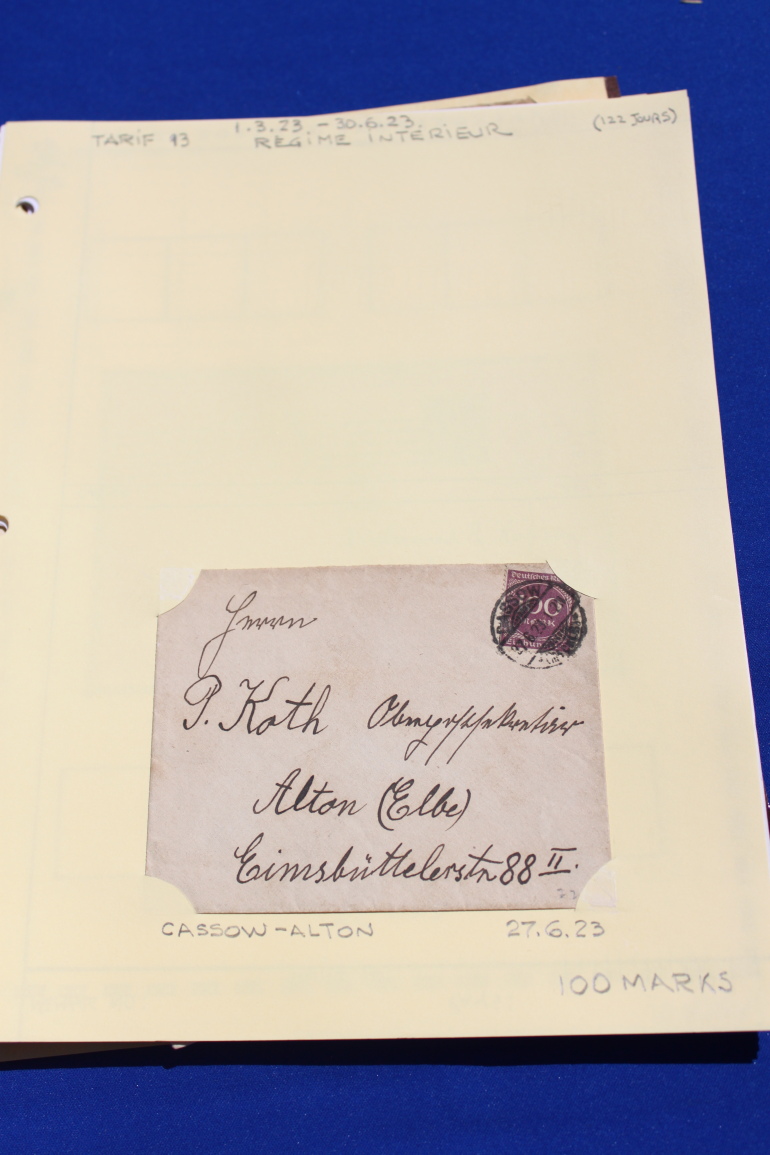 1.3.23 - 30.6.23.
TARIF 13 RÉGIME INTÉRIEUR (122 JOURS)
Deutsches
Herrn
P. Koth Oberpostsekretär
Alton (Elbe)
Eimsbüttelerstr 88 II.
CASSOW - ALTON 27.6.23
100 MARKS